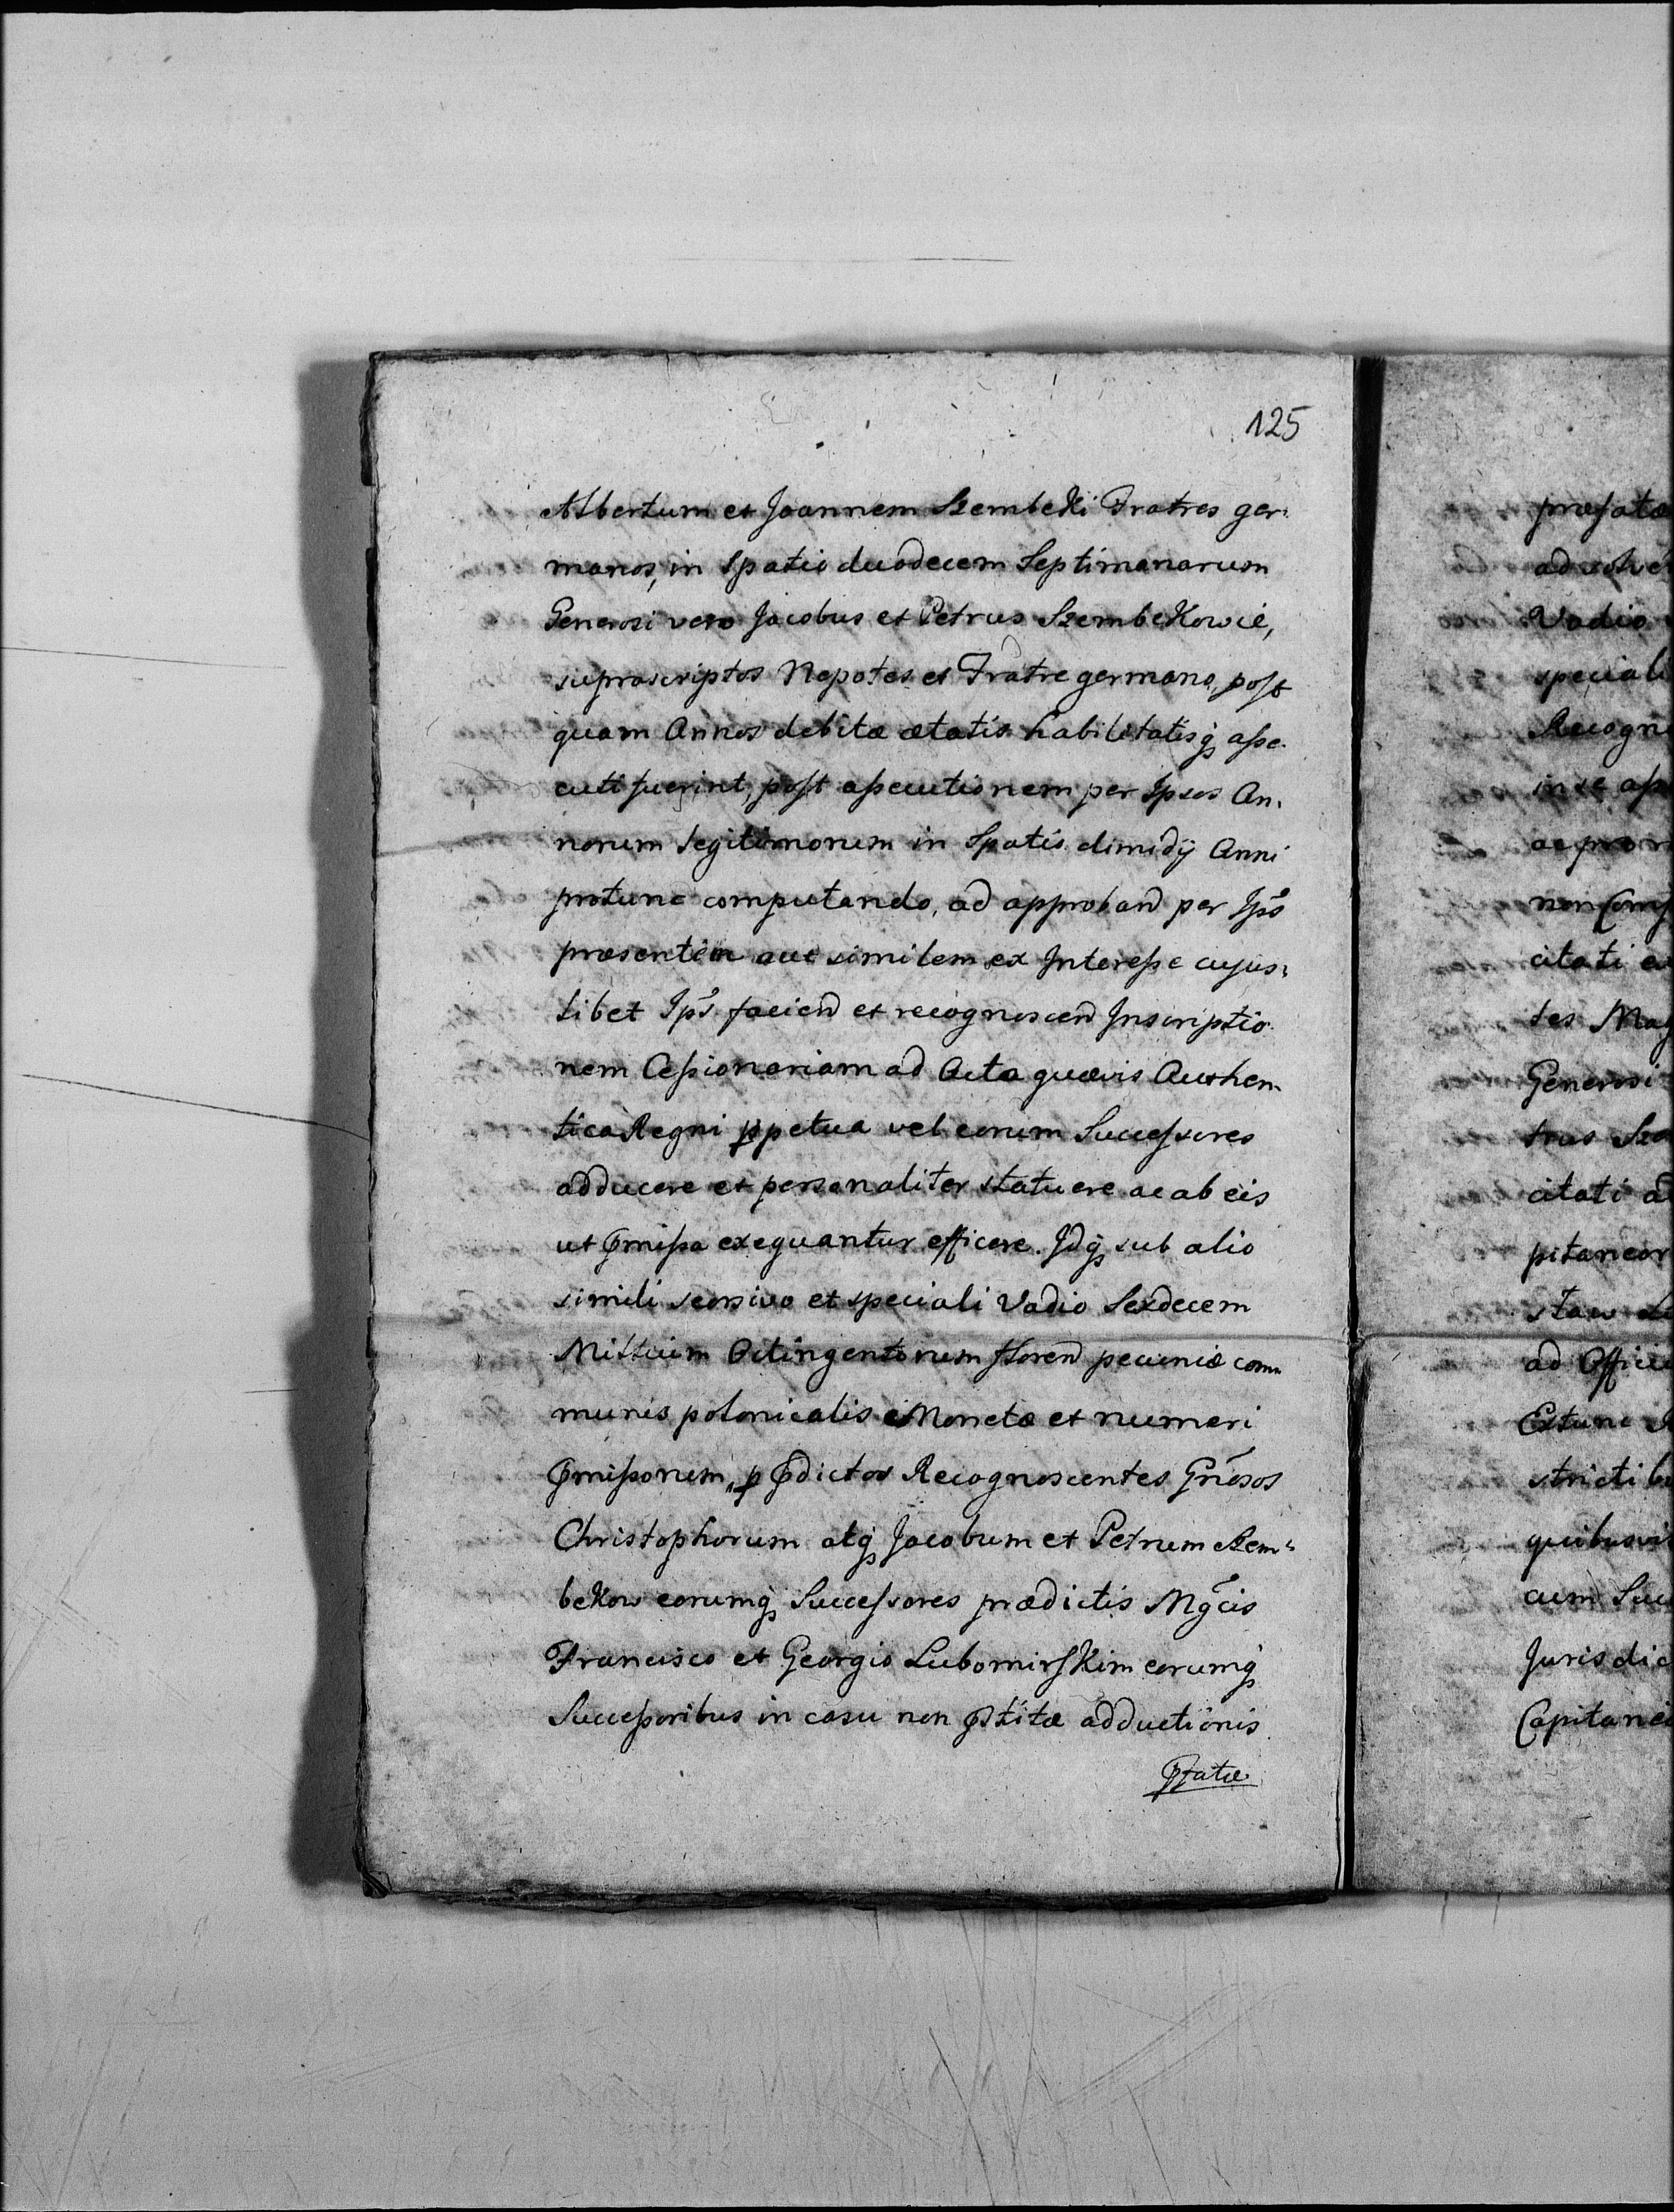 125
Albertum et Joannem Szembeki Fratres ger:
manos, in Spatio duodecem Septimanarum
Generosi vero Jacobus et Petrus Szembekowie,
suprascriptos Nepotes et Fratre germano, post
quam Annos debitæ ætatis habilitatisq̃ asse-
cuti fuerint, post assecutionem per Ipsos An-
norum legitimorum in Spatio dimidij Anni
protunc computando, ad approband per Ips̃o
præsentem aut similem ex Interesse cujus-
libet Ips̃ faciend et recognoscend Inscriptio-
nem Cessionariam ad Acta quævis Authen-
tica Regni ꝑpetua vel eorum Successores
adducere et personaliter statuere ac ab eis
ut p̃missa exequantur efficere. Idq̃ sub alio
simili seorsivo et speciali Vadio Sexdecem
Millium Octingentorum floren pecuniæ com-
munis polonicalis Monetæ et numeri
p̃missorum, ꝑ p̃dictos Recognoscentes Gnõsos
Christophorum atq̃ Jacobum et Petrum Szem-
bekow eorumq̃ Successores prædictis Mg̃cis
Francisco et Georgio Lubomirskim eorumq̃
Successoribus in casu non p̃stitæ adductionis
p̃fatæ
præfatæ
ad solve
Vadio
speciali
Recogn
in se ass
ac pro
non Comp
citati
tes Mag
Generosi
trus Sze
citati ad
pitaneor
staw
ad Officiu
Extunc
stricti
quibusvi
cum Suc
Jurisdic
Capitanei